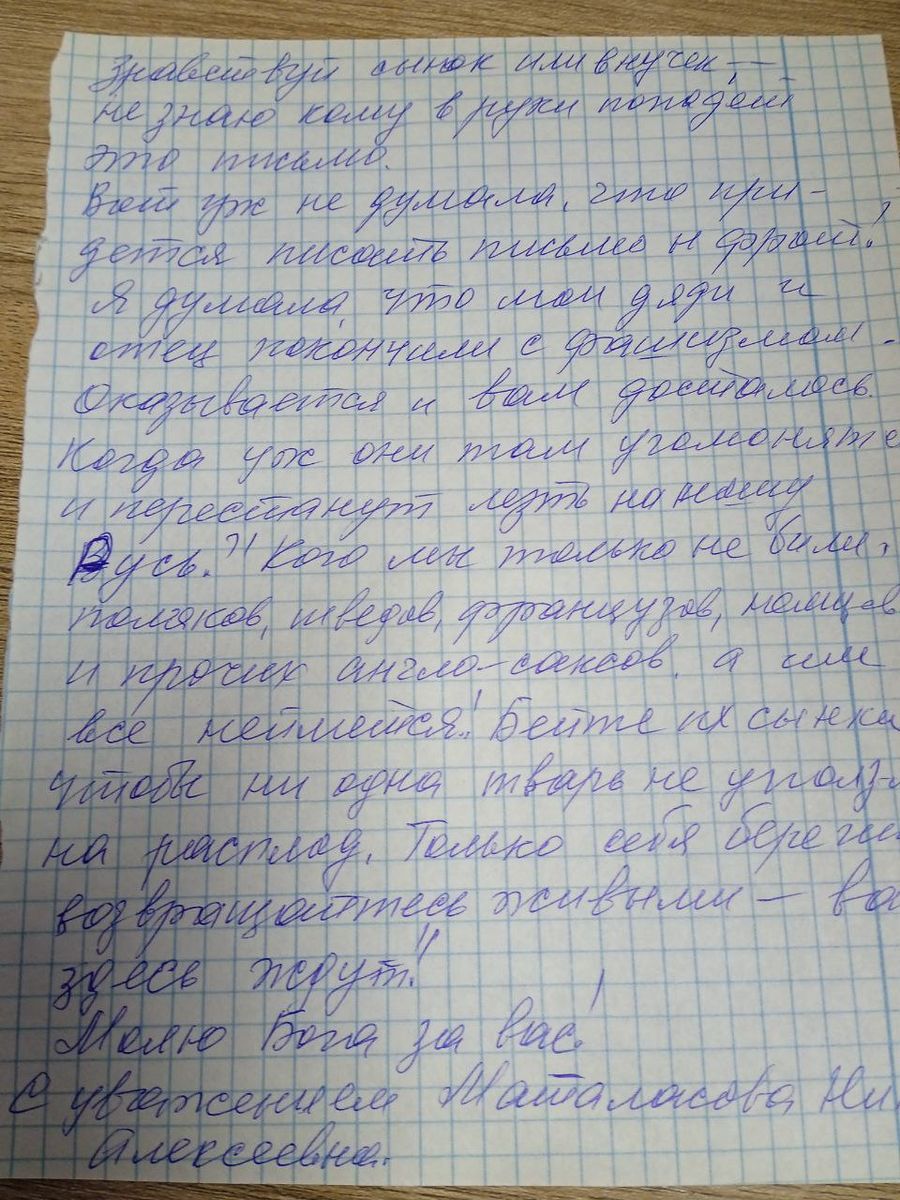 Зравствуй сынок или внучек —
не знаю кому в руки попадет
это письмо.
Вот уж не думала, что при-
дется писать письмо н фронт!
Я думала, что мои дяди и
отец покончили с фашизмом.
Оказывается и вам досталось.
Когда уж они там угомонятс
и перестанут лезть на нашу
Русь?! Кого мы только не били:
поляков, шведов, французов, немцев
и прочих англо-саксов, а им
все неймется! Бейте их сынки
чтобы ни одна тварь не уполз-л
на расплод. Только себя береги
возвращайтесь живыми — ва
здесь ждут!!
Молю Бога за вас!
С уважением Маталасова Ни
Алексеевна.